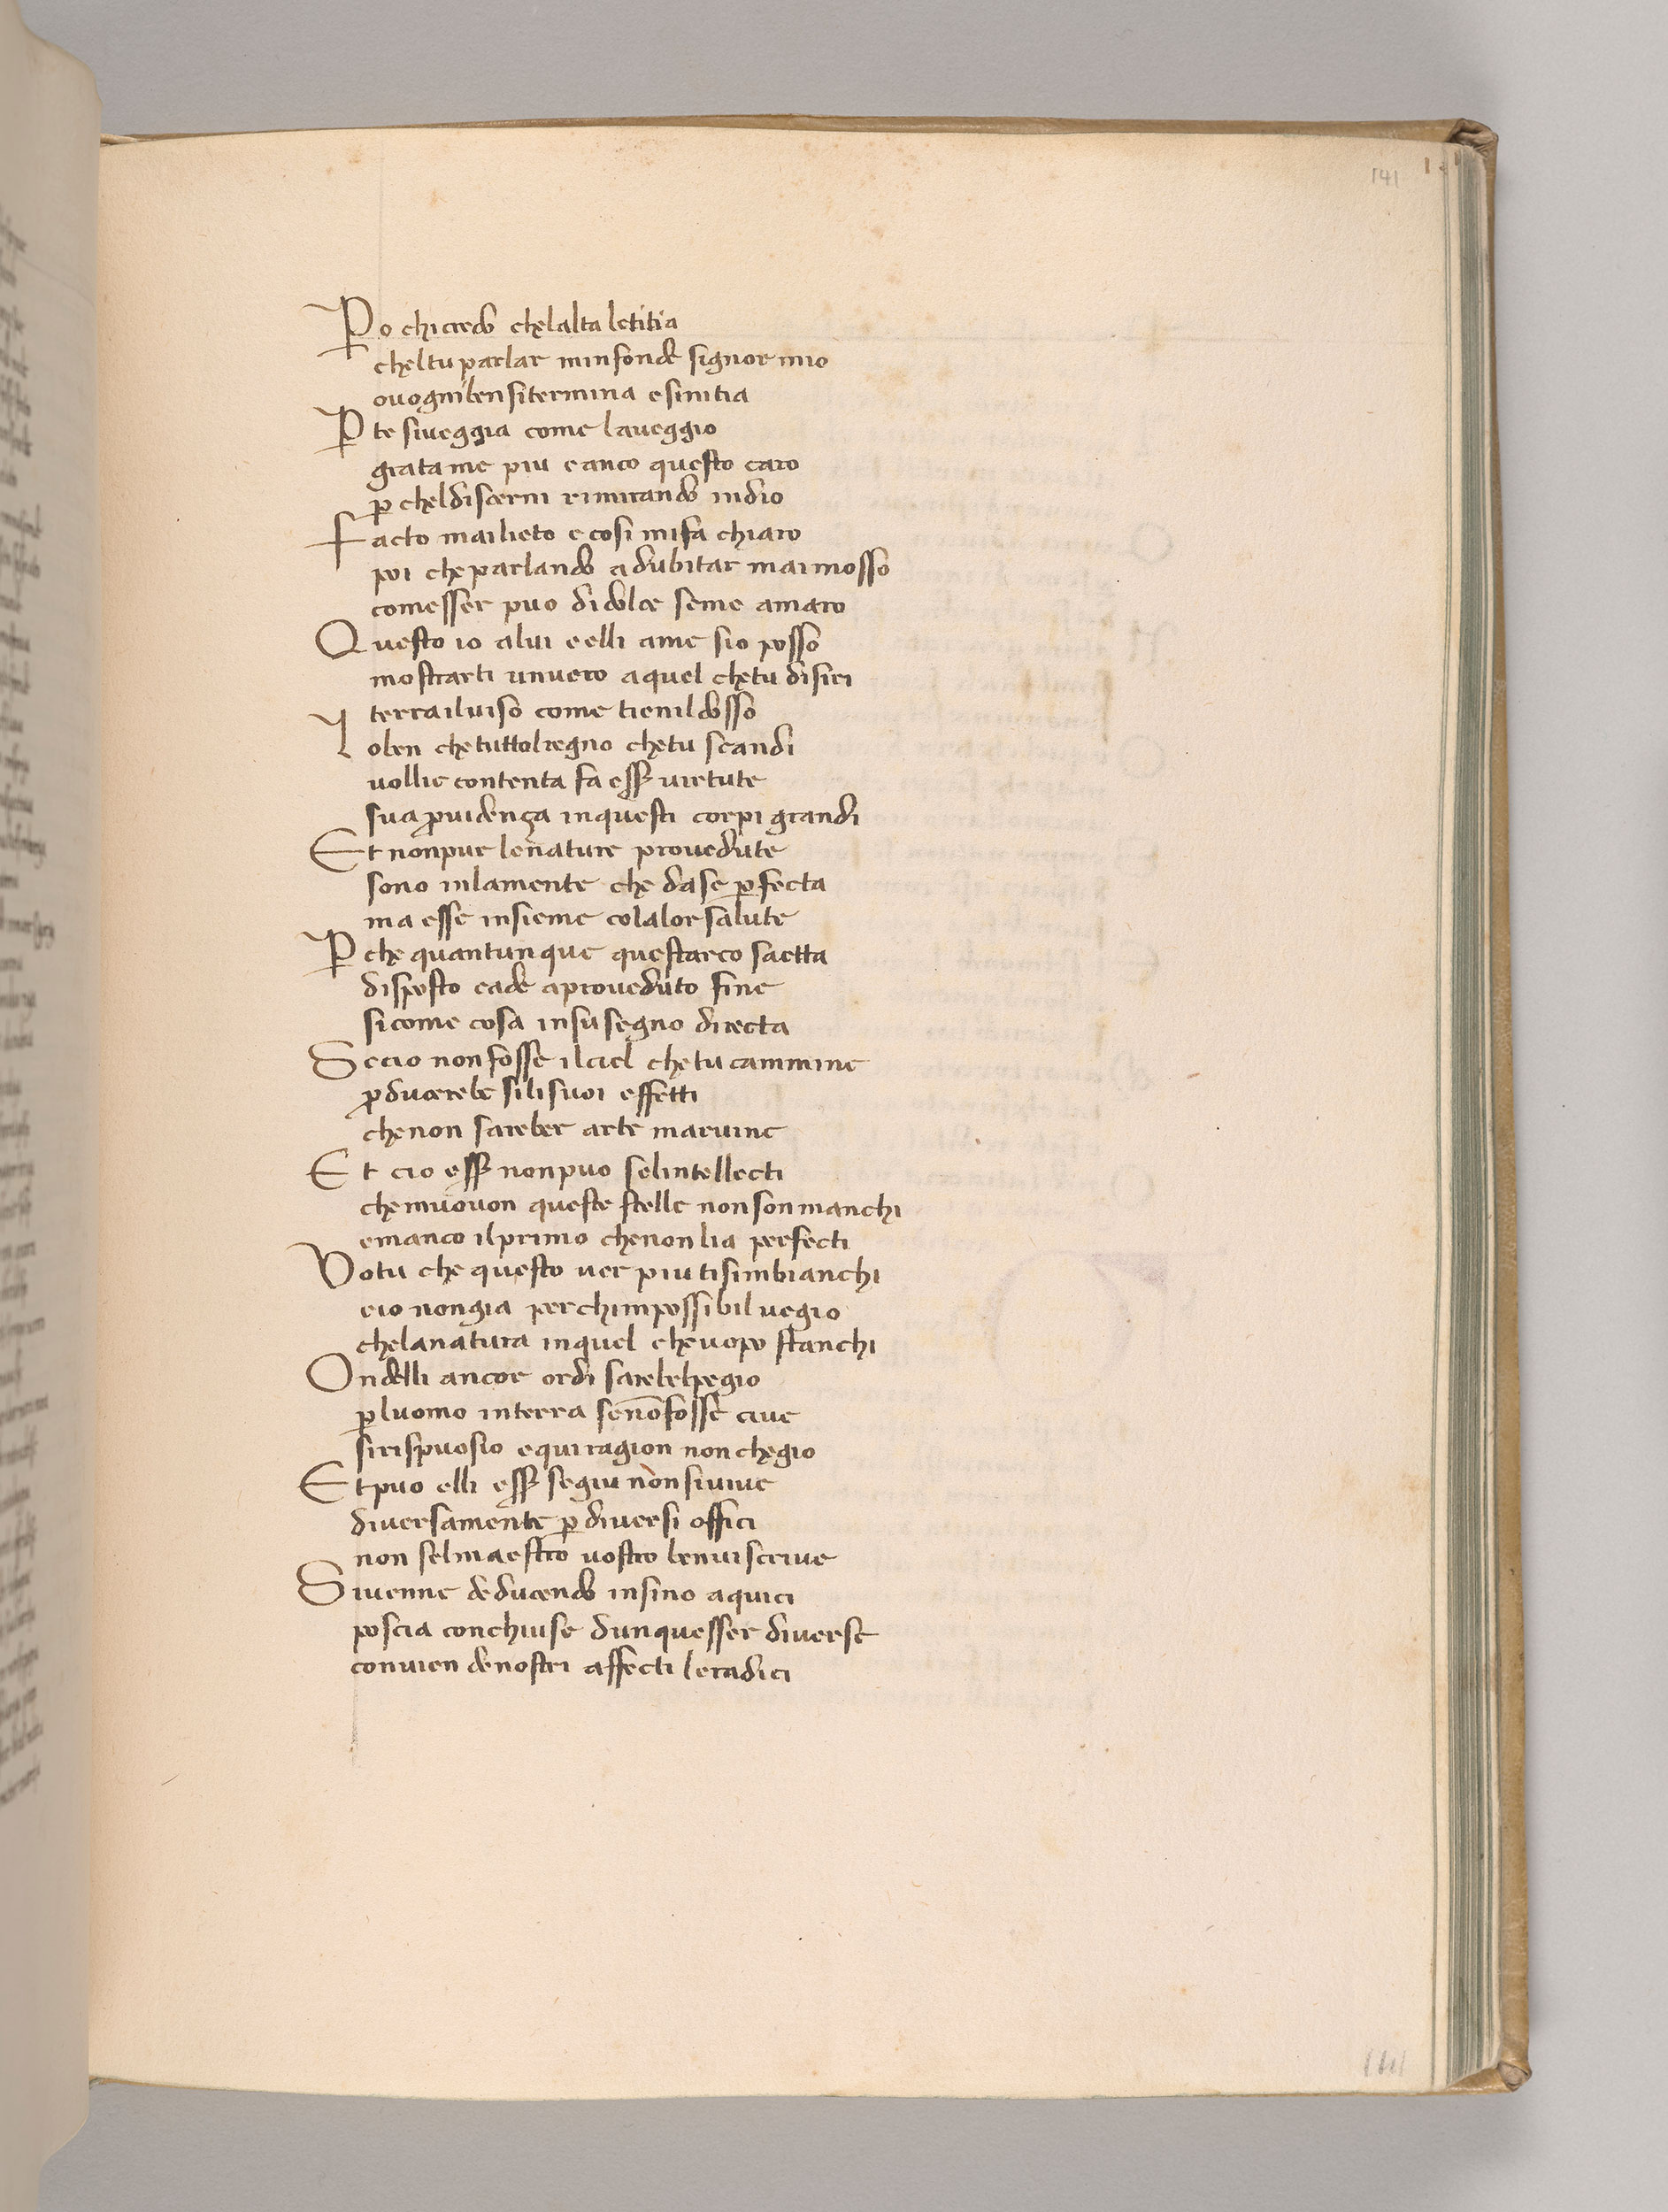 141
Po chi credo chelalta letitia
cheltu parlar minfonde signor mio
ovognibensitermina esinitia
P te siveggia come laveggio
grata me piu eanco questo caro
p cheldiscerni rimirando indio
Facto mailieto ecosi mifa chiaro
poi cheparlando adubitar maimosso
comesser puo didolce seme amaro
Questo io alui eelli ame sio posso
mostrarti unvero aquel chetu disiri
terrailuiso come tienildosso
Y oben chetuttolregno chetu scandi
vollie contenta fa ess virtute
sua pvidença inquesti corpi grandi
Et nonpur lenature provedute
sono inlamente che dase pfecta
ma esse insieme colalor salute
P che quantunque questarco saetta
disposto cade aproveduto fine
sicome cosa insusegno directa
Se cio nonfosse ilciel chetu cammine
pducerebe silisuoi effetti
chenon sareber arte maruine
Et cio ess nonpuo selintellecti
chemuovon queste stelle nonsonmanchi
emanco ilprimo chenonlia perfecti
Votu che questo ver piu tisimbianchi
eio nongia perchimpossibil uegio
chelanatura inquel cheuopo stanchi
Ondelli ancor ordi sarebelpegio
pluomo interra senōfosse ciue
sirispuosio equiragion nonchegio
Etpuo elli ess segiu nonsiuiue
diversamente pdiversi offici
non selmaestro vostro benuiscrive
Sivenne deducendo insino aquici
poscia conchiuse dunquesser diverse
convien denostri affecti leradici